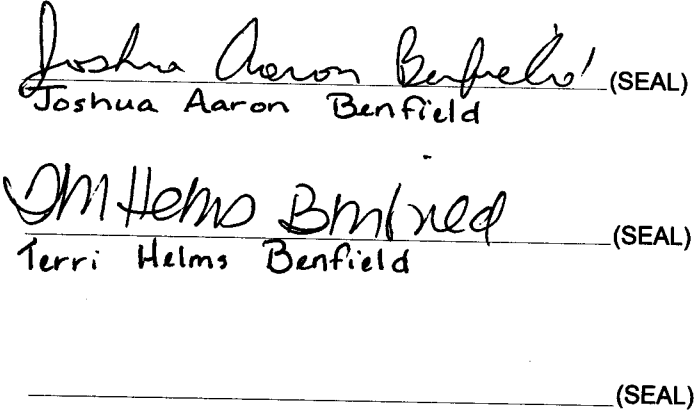 Joshua Aaron Benfield (SEAL)
Joshua Aaron Benfield
Helms (SEAL)
Terri Helms Benfield
(SEAL)